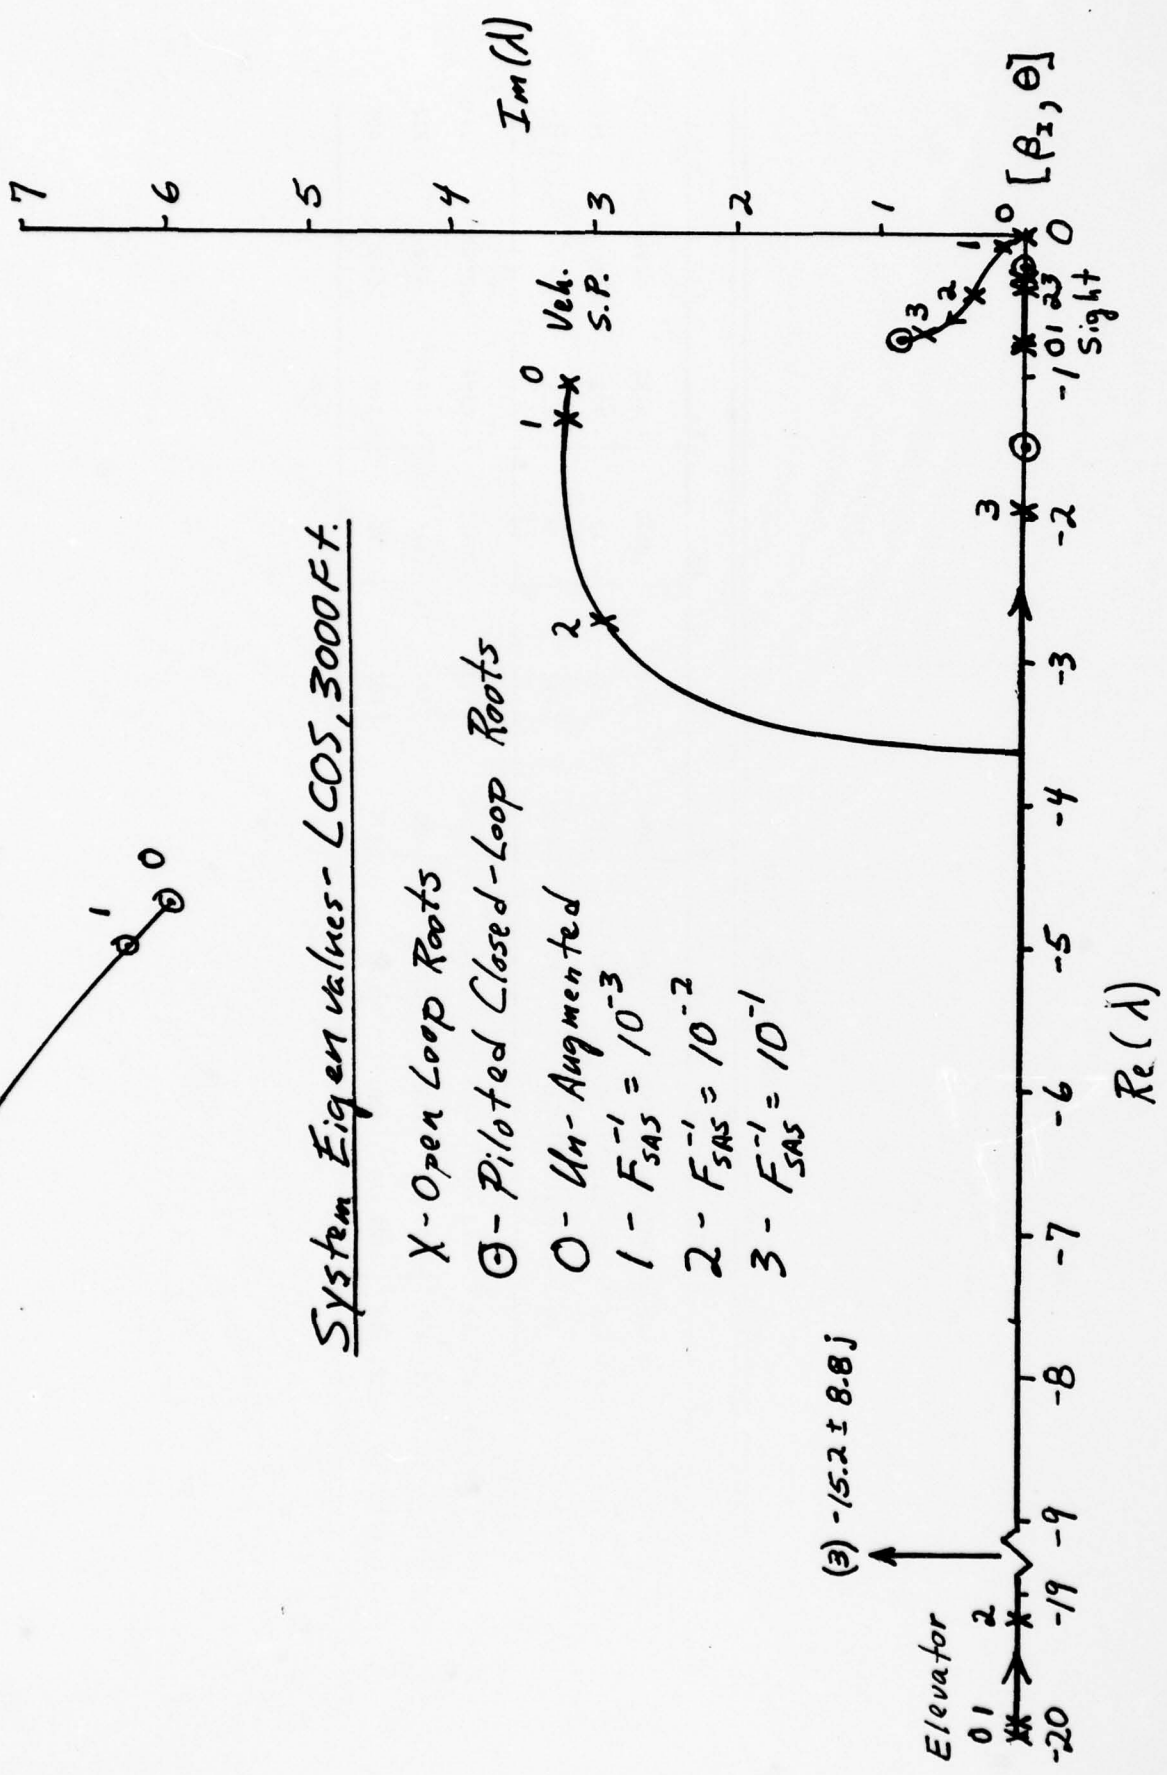 System Eigenvalues- LCOS, 3000Ft.
X - Open Loop Roots
⊙ - Piloted Closed-Loop Roots
0 - Un-Augmented
1 - F_SAS^-1 = 10^-3
2 - F_SAS^-1 = 10^-2
3 - F_SAS^-1 = 10^-1
Im(λ)
7
6
5
4
3
2
1
1
0
1 0 Veh.
S.P.
2
3
2
1
0
[β_I, θ]
3
(3) -15.2 ± 8.8j
Elevator
0 1
2
-20 -19 -9 -8 -7 -6 -5 -4 -3 -2 -1 0
01 23
Sight
Re(λ)